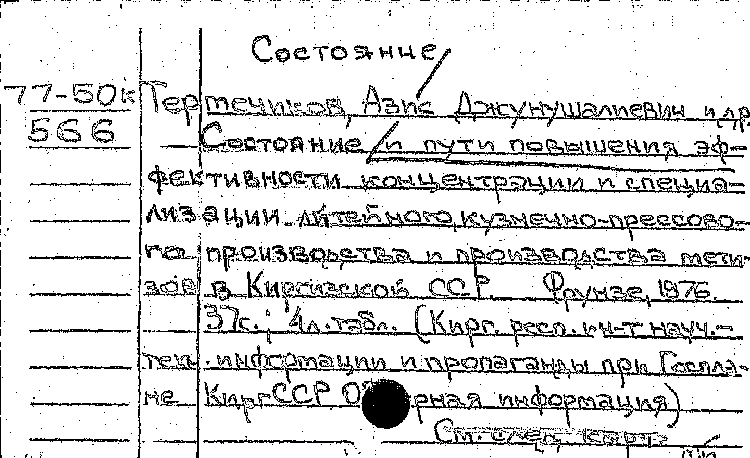 Состояние
77-50к Тертечиков, Азис Джунушалиевич и др.
566 Состояние и пути повышения эф-
фективности концентрации и специа-
лизации литейного, кузнечно-прессово-
го производства и производства мети-
зов в Киргизской ССР. Фрунзе, 1976.
37с.; 4л. табл. (Кирг. респ. ин-т науч.-
техн. информации и пропаганды при Госпла-
не КиргССР информация)
См. след. карт.